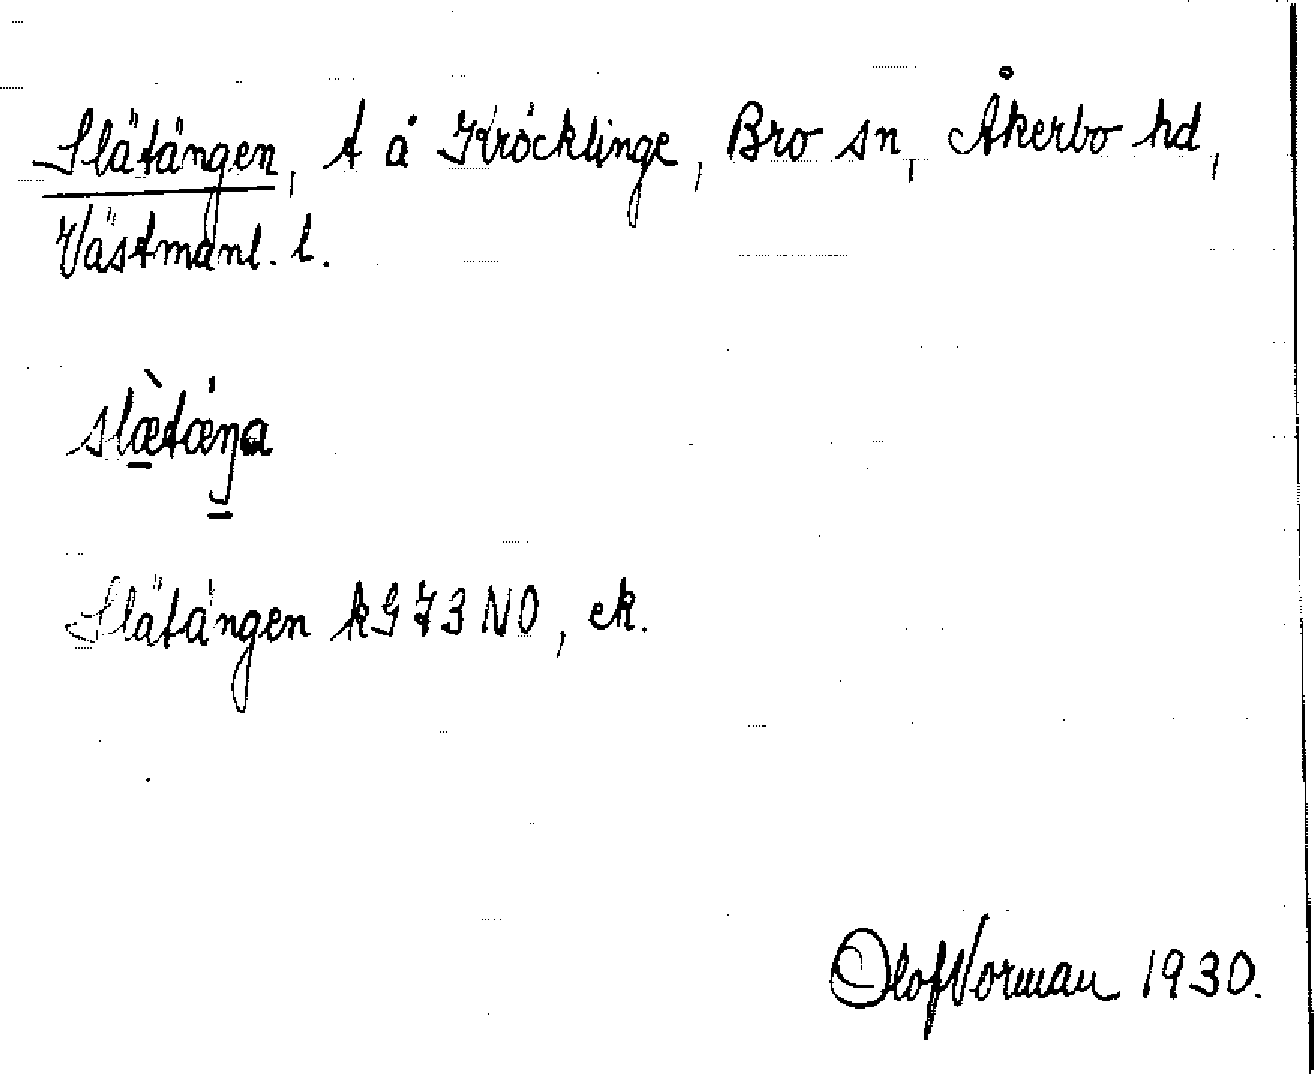 Slätängen, t å Kröcklinge, Bro sn, Åkerbo hd,
Västmanl. l.
slæ̀tæŋa
Slätängen kG73NO, ek.
Olof Norman 1930.